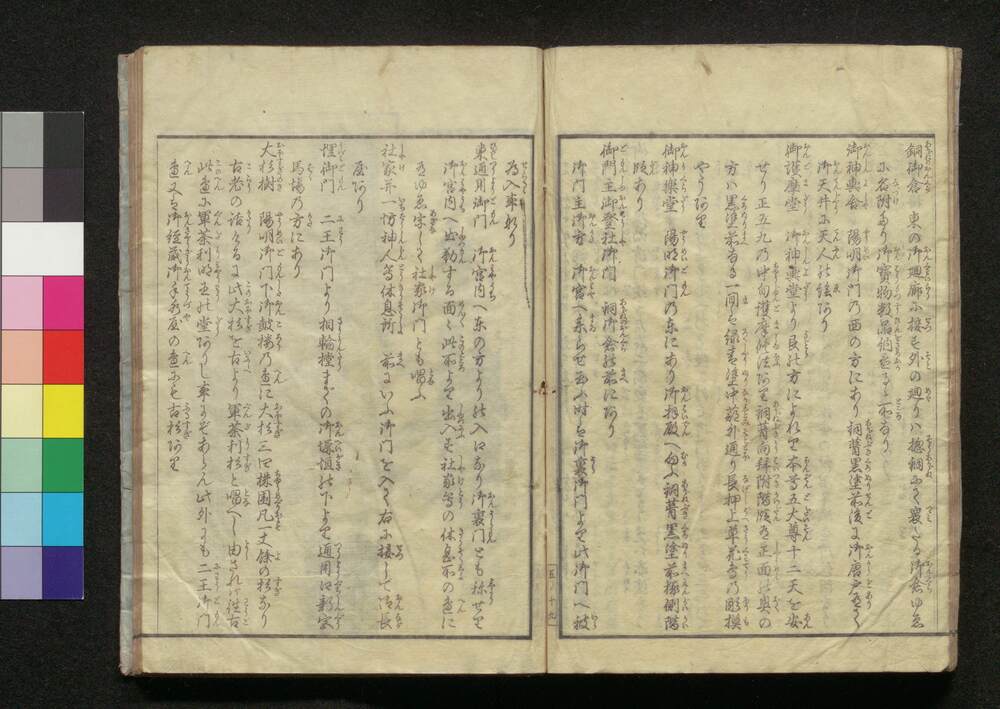 銅御倉 東の御廻廊に接す外の廻りは惣銅にて裹たる御倉ゆゑ
に名附あり御宝物数品納る所なり
御神輿舎 陽明御門の西の方にあり銅葺黒塗前後に御唐戸あり
御天井に天人の絵あり
御護摩堂 御神輿堂より艮の方によれり本尊五大尊十二天を安
せり正五九の中旬護摩修法あり銅葺向拝附階段正面の奥の
方は黒塗前なる一間は緑青塗中敷外通り長押上草花等の彫模
やうあり
御神楽堂 陽明御門の東にあり御拝殿へ向ふ銅葺黒塗前椽側階
段あり
御門主御登社御門 銅御倉の前にあり
御門主御方 御宮へ来らせ玉ふ時は御裏御門より此御門へ被
為入事なり
東通用御門 御宮内へ東の方よりの入口なり御裏門とも称せり
御宮内へ出勤する面々此所より出入す社家等の休息所の連に
ゆゑ字して社家御門とも唱ふ
社家并一坊神人等休息所 前にいふ御門を入て右に接して御長
屋あり
埋御門 二王御門より相輪橖まての御塀垣の下より通用口新宮
馬場の方にあり
大杉樹 陽明御門下御鼓楼の辺に大杉三四株囲凡一丈余の杉あり
古老の話けるに此大杉を古より軍荼利杉と唱へし由されは往古
此辺に軍荼利明王の堂ありし事にそあらん此外にも二王御門
辺又は御経蔵御手水屋の辺にも古杉あり
五ノ十九